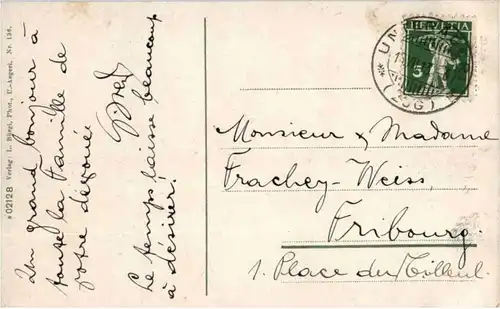 Un grand bonjour à
toute la famille de
votre dévouée
Le temps laisse beaucoup
à désirer!
№ 02128 Verlag L. Bürgi, Phot., U.-Aegeri, Nr. 136.
HELVETIA
5
UN
(ZUG)
Monsieur & Madame
Frachey-Weiss,
Fribourg.
1. Place du Tilleul.